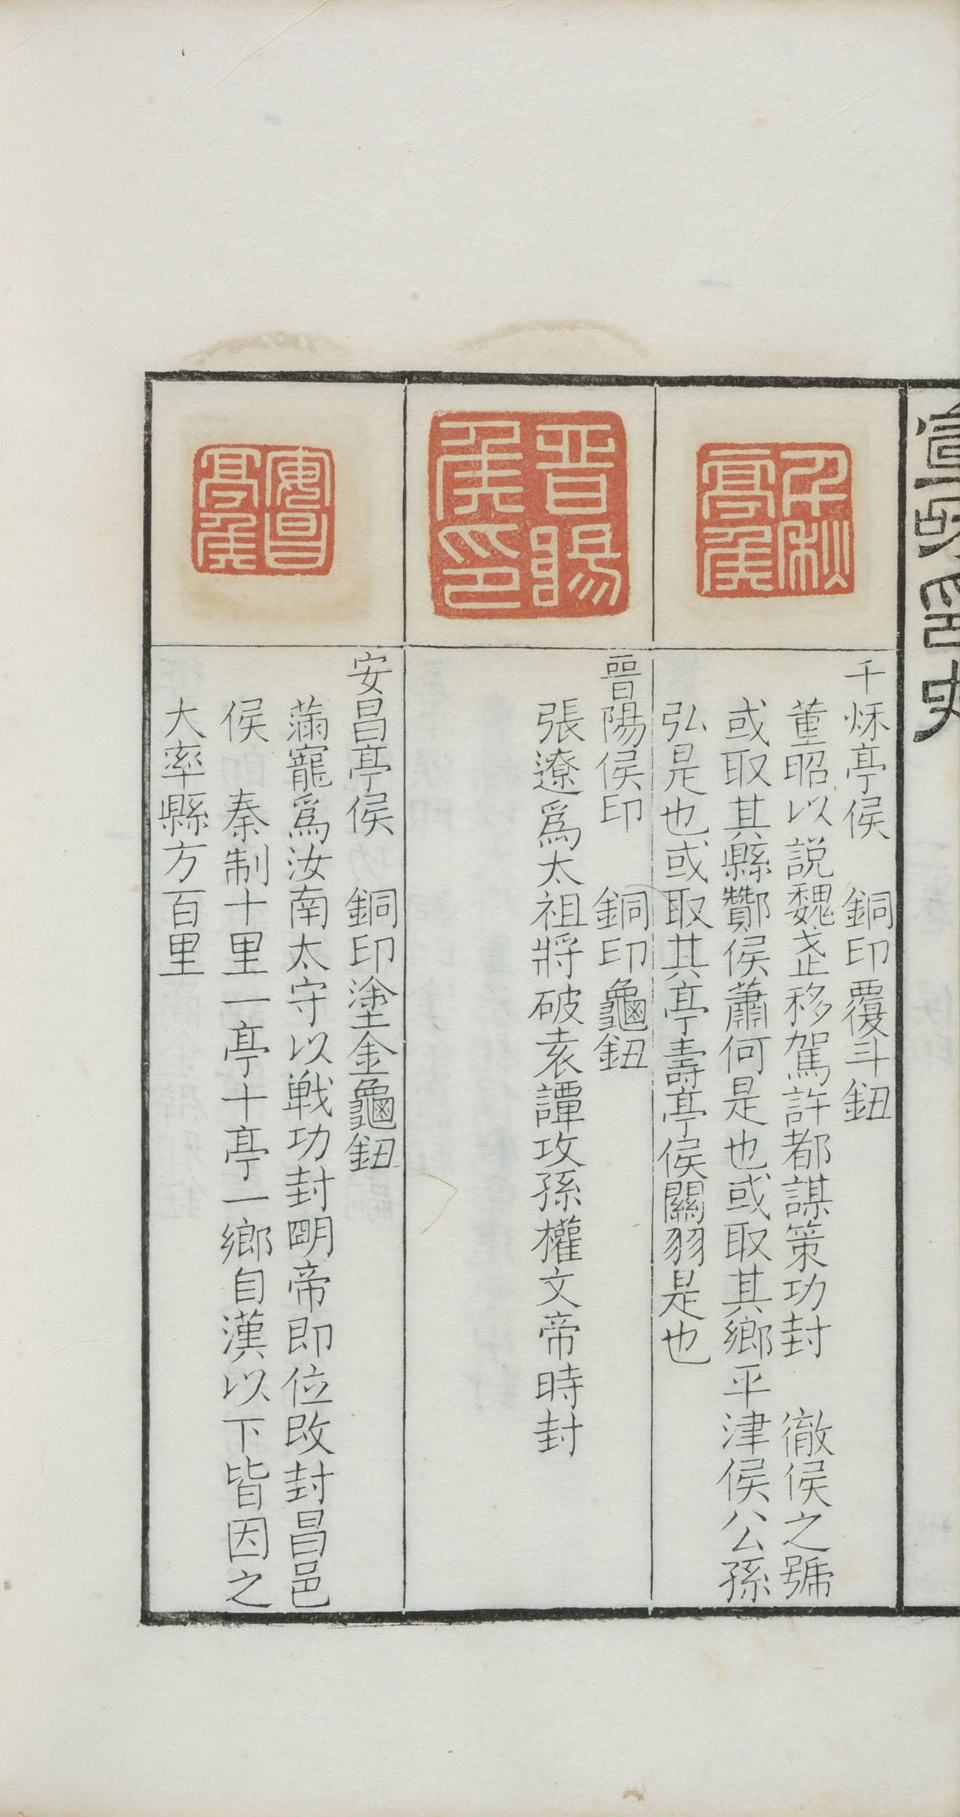 宣和印史
千秋亭侯
千秋亭侯　銅印覆斗鈕
董昭以説魏武移駕許都謀策功封　徹侯之號
或取其縣酇侯蕭何是也或取其鄉平津侯公孫
弘是也或取其亭壽亭侯關羽是也
晉陽侯印
晉陽侯印　銅印龜鈕
張遼爲太祖將破袁譚攻孫權文帝時封
安昌亭侯
安昌亭侯　銅印塗金龜鈕
滿寵爲汝南太守以戰功封明帝即位改封昌邑
侯　秦制十里一亭十亭一鄉自漢以下皆因之
大率縣方百里